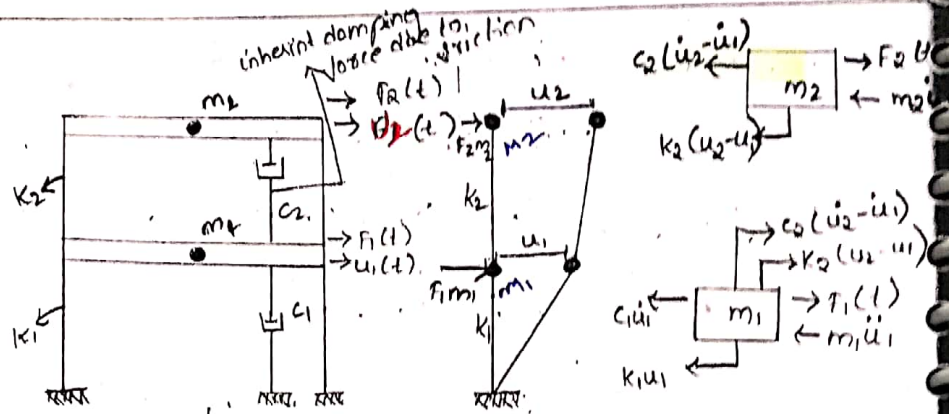 inherint damping
force due to
friction
m2
F2(t)
U2(t)
K2
C2
m1
F1(t)
u1(t)
K1
C1
u2
F2m2
m2
K2
u1
F1m1
m1
K1
c2(u̇2-u̇1)
F2(
m2
m2
K2(u2-u1)
c2(u̇2-u̇1)
K2(u2-u1)
c1u̇1
m1
F1(t)
m1ü1
K1u1